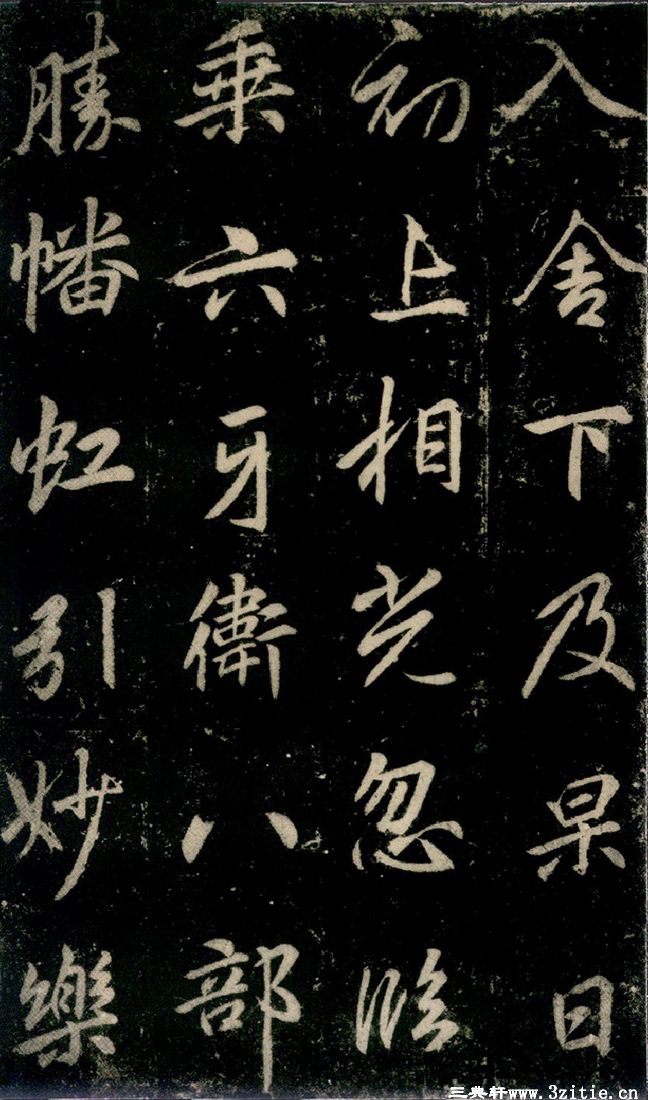 入舍下及杲日
初上相光忽臨
乗六牙衛八部
勝幡虹引妙樂
三典轩www.3zitie.cn